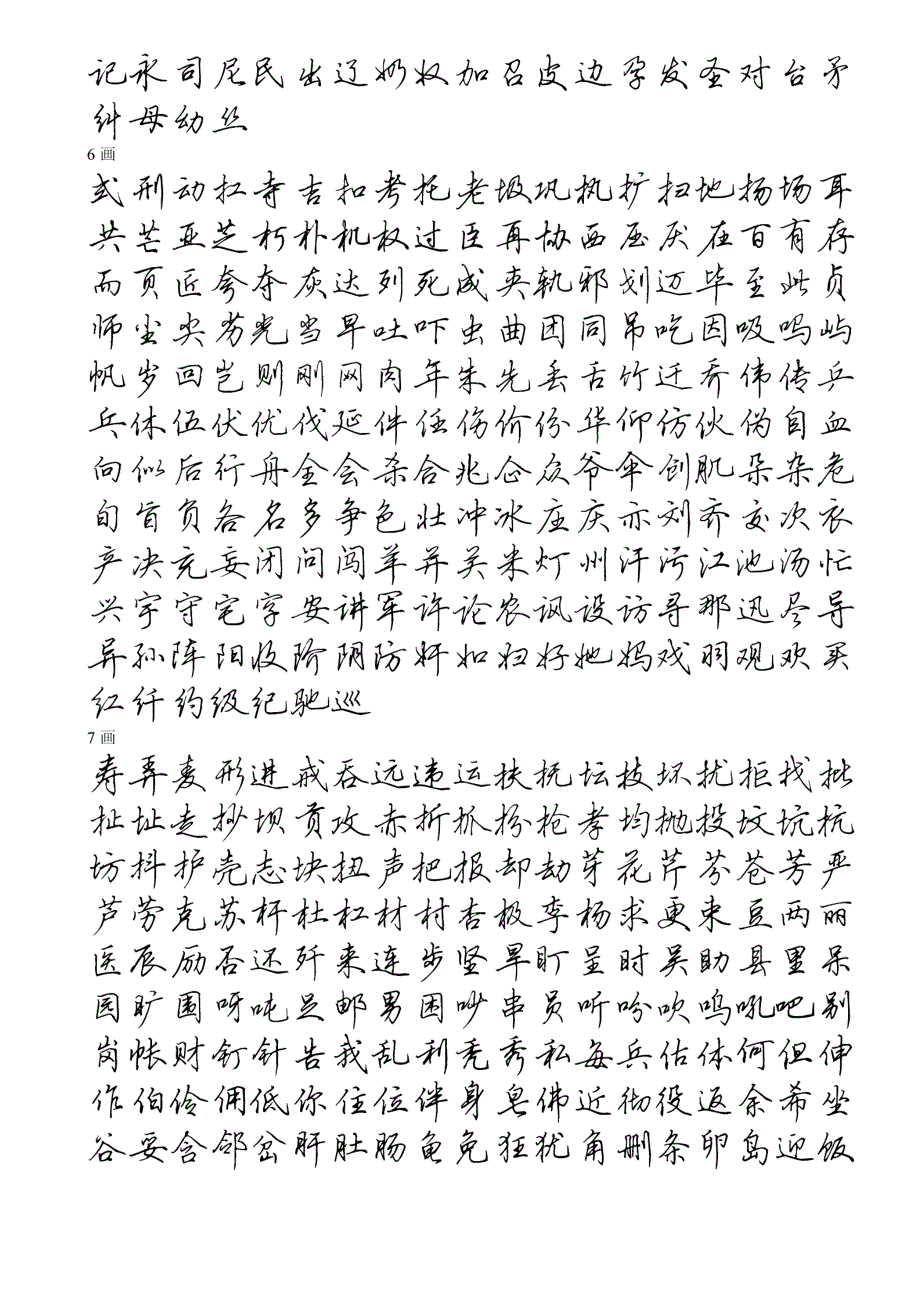 记永司尼民出辽奶奴加召皮边孕发圣对台矛
纠母幼丝
6 画
式刑动扛寺吉扣考托老圾巩执扩扫地扬场耳
共芒亚芝朽朴机权过臣再协西压厌在百有存
而页匠夸夺灰达列死成夹轨邪划迈毕至此贞
师尘尖劣光当早吐吓虫曲团同吊吃因吸吗屿
帆岁回岂则刚网肉年朱先丢舌竹迁乔伟传乒
乓休伍伏优伐延件任伤价份华仰仿伙伪自血
向似后行舟全会杀合兆企众爷伞创肌朵杂危
旬旨负各名多争色壮冲冰庄庆亦刘齐交次衣
产决充妄闭问闯羊并关米灯州汗污江池汤忙
兴宇守宅字安讲军许论农讽设访寻那迅尽导
异孙阵阳收阶阴防奸如妇好她妈戏羽观欢买
红纤约级纪驰巡
7 画
寿弄麦形进戒吞远违运扶抚坛技坏扰拒找批
扯址走抄坝贡攻赤折抓扮抢孝均抛投坟坑抗
坊抖护壳志块扭声把报却劫芽花芹芬苍芳严
芦劳克苏杆杜杠材村杏极李杨求更束豆两丽
医辰励否还歼来连步坚旱盯呈时吴助县里呆
园旷围呀吨足邮男困吵串员听吩吹呜吼吧别
岗帐财钉针告我乱利秃秀私每兵估体何但伸
作伯伶佣低你住位伴身皂佛近彻役返余希坐
谷妥含邻岔肝肚肠龟免狂犹角删条卵岛迎饭